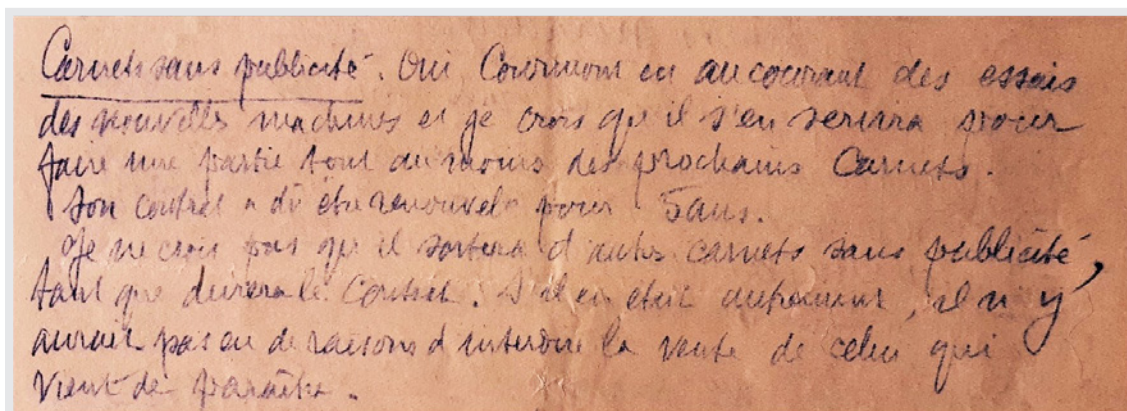 Carnets sans publicité. Oui Courmont est au courant des essais
des nouvelles machines et je crois qu'il s'en servira pour
faire une partie tout au moins des prochains Carnets.
Son contrat a dû être renouvelé pour 5 ans.
Je ne crois pas qu'il sortira d'autres carnets sans publicité,
tant que durera le Contrat. S'il en était autrement, il n'y
aurait pas eu de raisons d'interdire la vente de celui qui
vient de paraître.